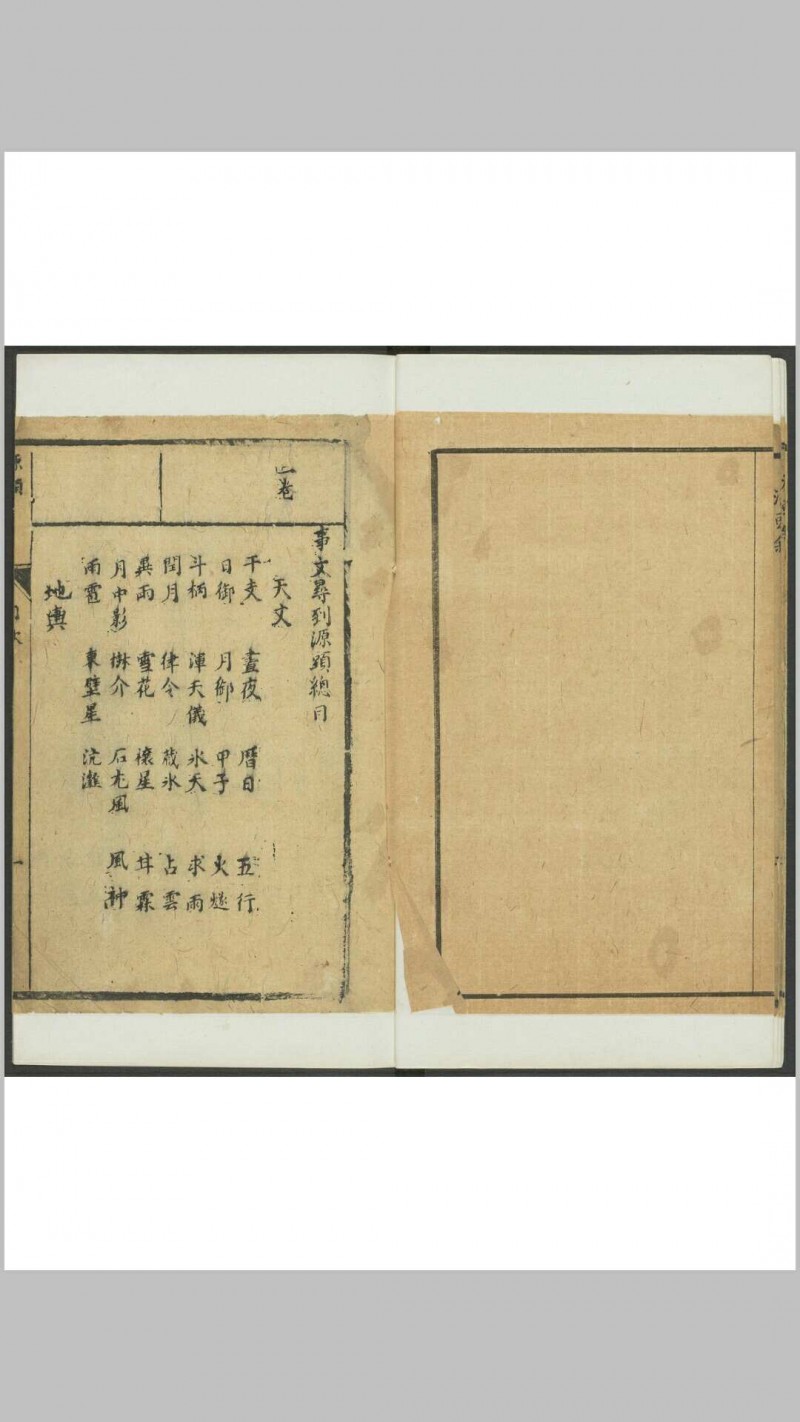 一卷
事文尋到源頭總目
天文
干支 晝夜 曆日 五行
日御 月御 甲子 火燧
斗柄 渾天儀 氷天 求雨
閏月 律令 藏氷 占雲
異雨 雪花 禳星 霖
月中影 樹介 石尤風 風神
雨雹 東壁星 沆瀣
地輿
源頭
目次
一